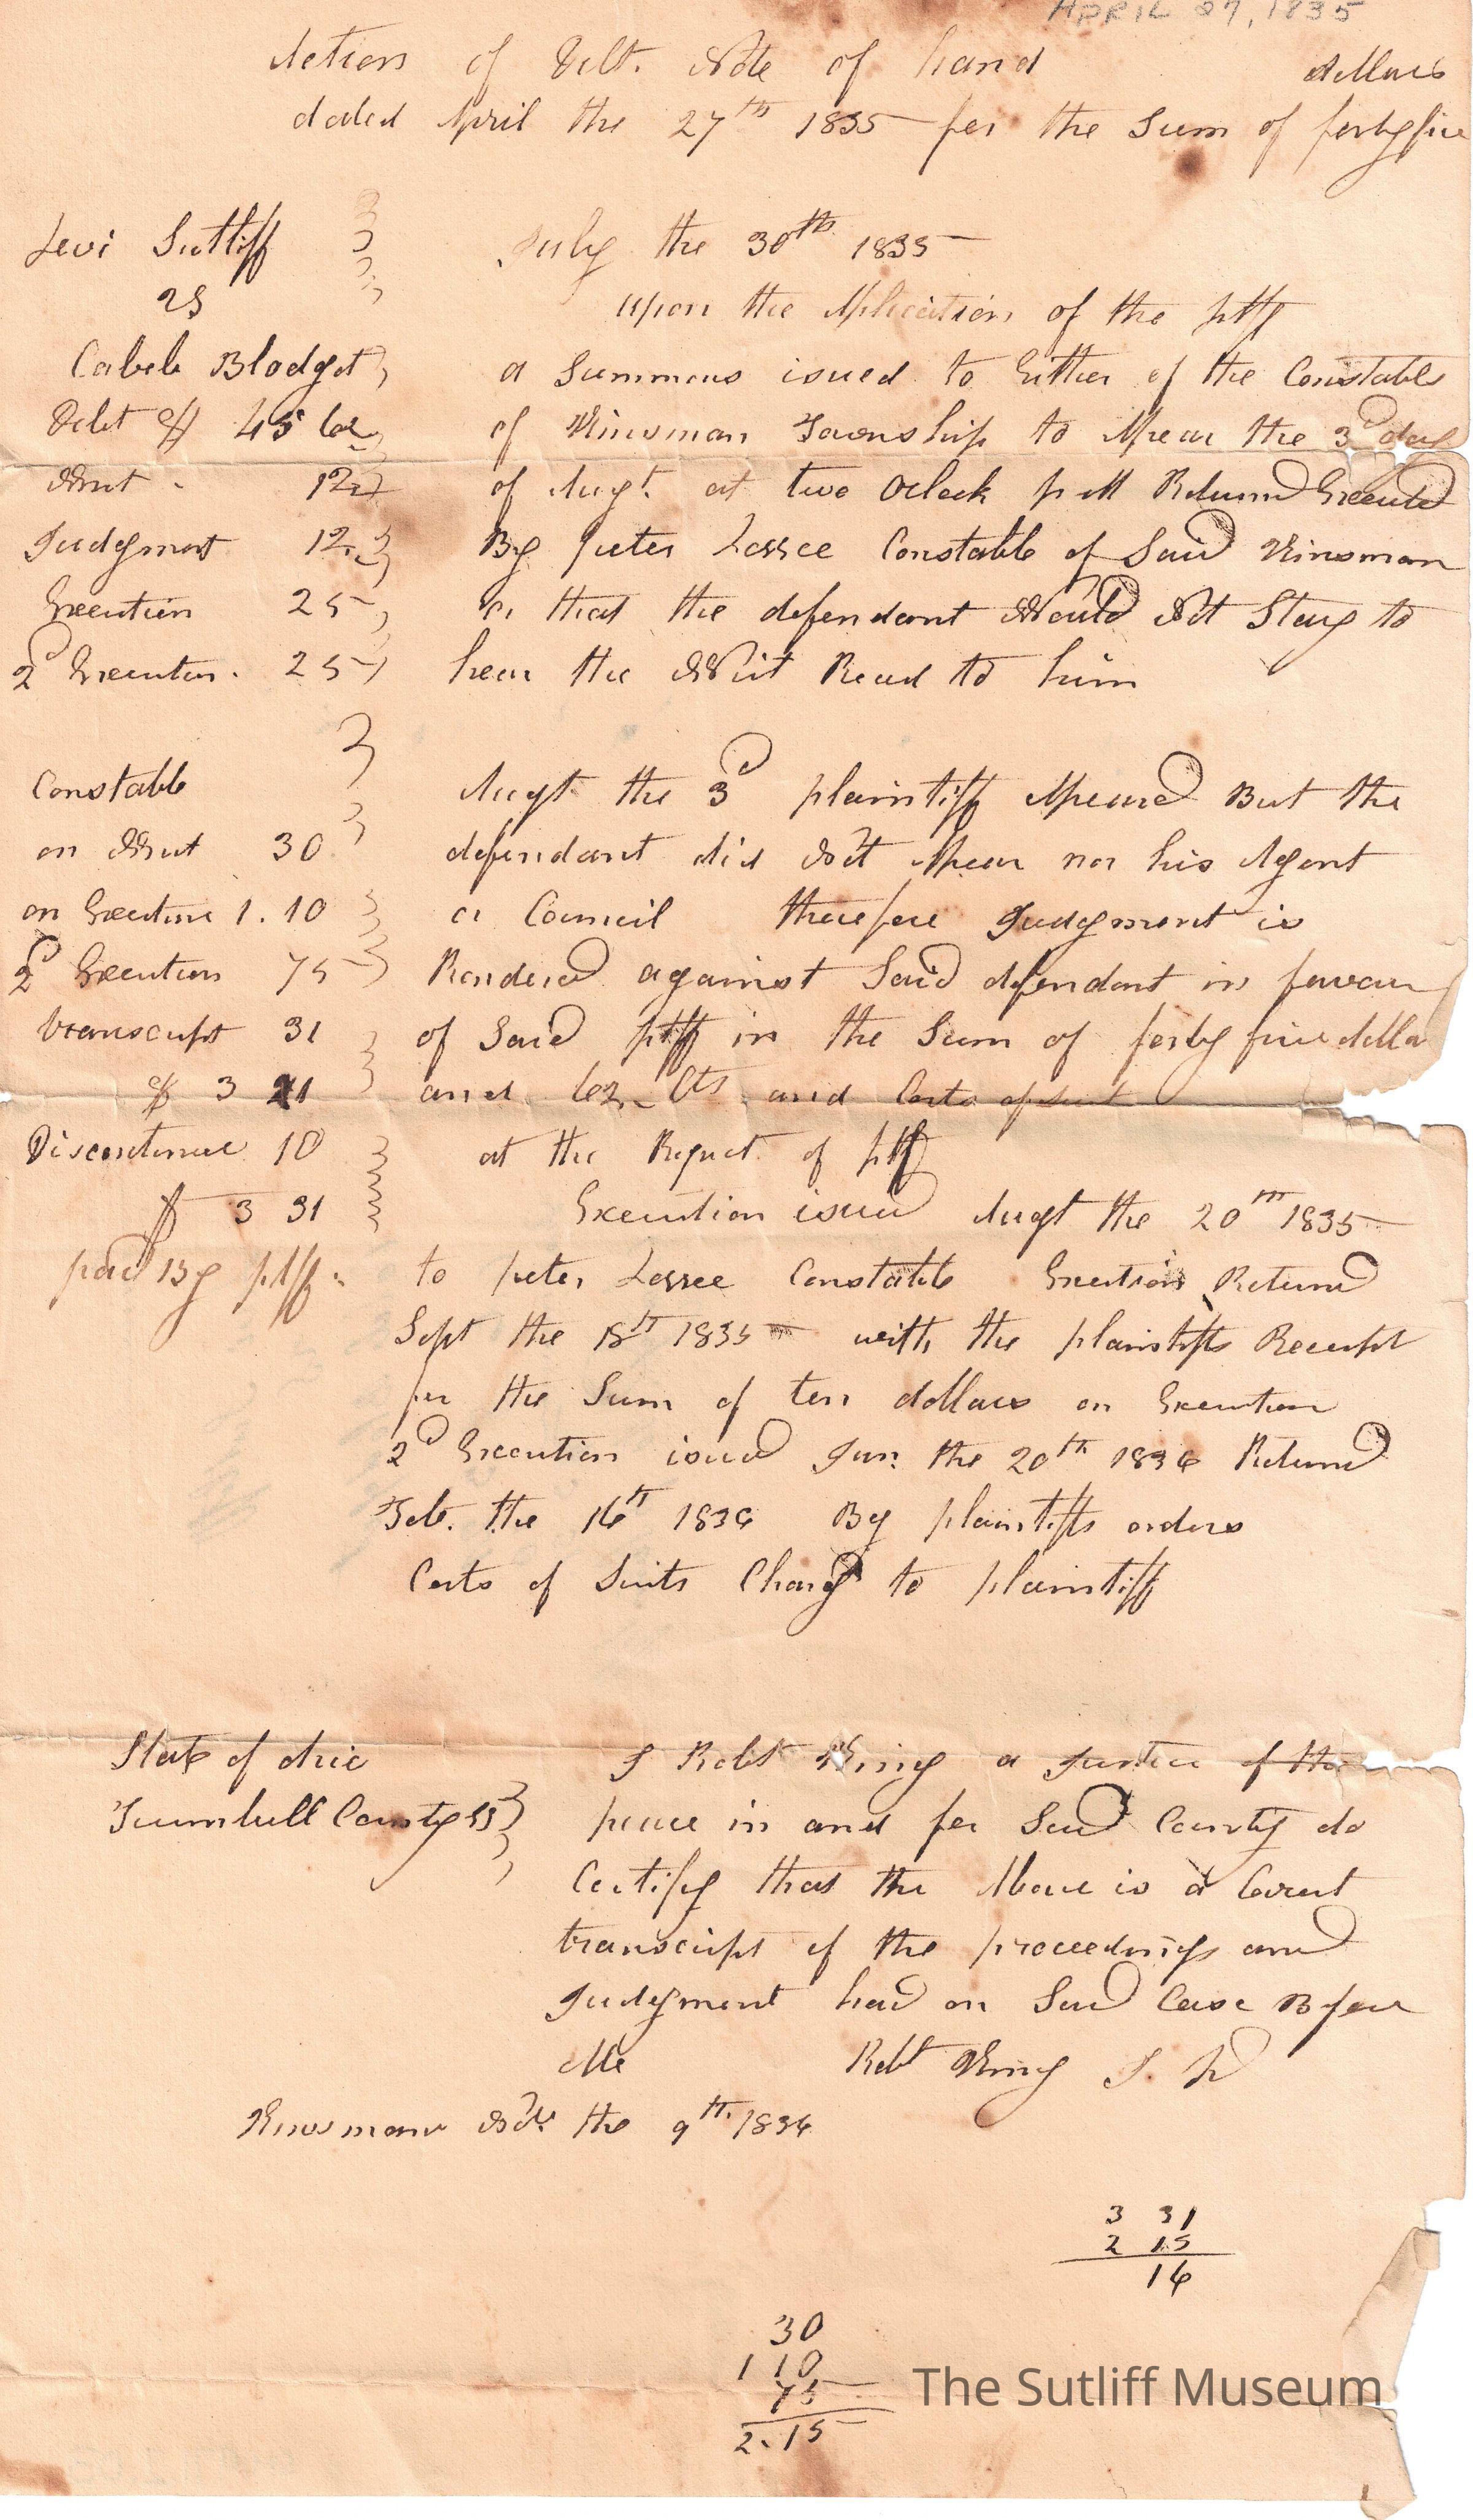 APRIL 27, 1835
Action of Debt. Note of hand dollars
dated April the 27th 1835 for the Sum of forty five
Levi Sutliff
vs
Caleb Blodget
Debt $ 45 62
Writ - 12
Judgment 12
Execution 25
2d Execution. 25
Constable
on Writ 30
on Execution 1.10
2d Execution 75
transcript 31
$ 3 21
Discontinue 10
$ 3 31
paid By ptff
July the 30th 1835
upon the Aplication of the ptff
a Summons issued to Either of the Constables
of Kinsman Township to Apear the 3d day
of Augt. at two Oclock p M Returnd Executed
By Peter Lossee Constable of Said Kinsman
that the defendant Would Not Stay to
hear the Writ Read to him
Augt the 3d plaintiff Apeared But the
defendant did Not Apear nor his Agent
or Council therefore Judgment is
Renderd against Said defendant in favour
of Said ptff in the Sum of forty five dolla
and 62 Cts and Costs of suit
at the Request of ptff
Execution issued Augt the 20th 1835
to peter Lossee Constable Execution Returnd
Sept the 18th 1835 with the plaintiffs Receipt
for the Sum of ten dollars on Execution
2d Execution issued Jan. the 20th 1836 Returnd
Feb. the 16th 1836 By plaintiffs orders
Costs of Suits Chargd to plaintiff
State of Ohio
Trumbull County SS
I Robt King a Justice of the
peace in and for Said County do
Certify that the Above is a Corect
transcript of the proceedings and
Judgment had on Said Case Before
Me Robt King J. P
Kinsman Nov. the 9th 1836
3 31
2 15
16
30
1 10
75
2.15
The Sutliff Museum